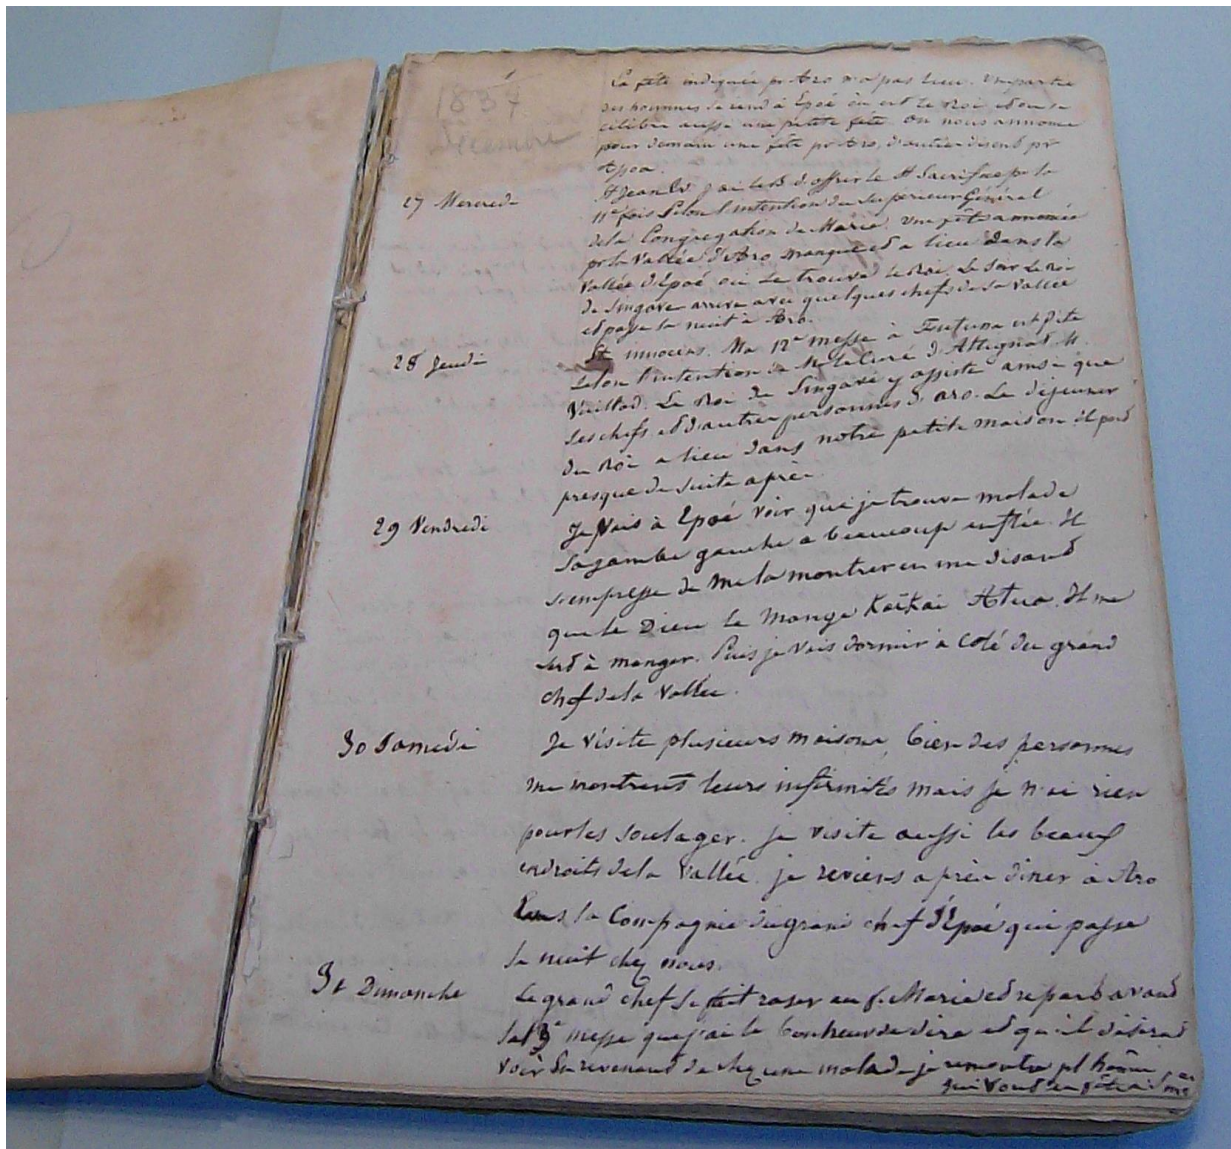 1837
Décembre
La fête indiquée pr Aro n'a pas lieu. Une partie
des hommes se rend à Epoé où est le Roi, et on se
célèbre aussi une petite fête. On nous annonce
pour demain une fête pr Aro, d'autres disent pr
Epoa.
27 Mercredi St Jean Ev j'ai le B d'offrir le St Sacrifice pr la
11e fois selon l'intention du Supérieur Général
de la Congregation de Marie. Une fête annoncée
pr la Vallée d'Aro manque et a lieu dans la
Vallée d'Epoé où se trouve le Roi. Le soir le Roi
de Singave arrive avec quelques chefs de sa Vallée
et passe la nuit à Aro.
28 Jeudi St innocens. Ma 12e messe à Futuna est dite
selon l'intention de Mr le Curé d'Attignat M.
Vuillod. Le Roi de Singave y assiste ainsi que
ses chefs et d'autres personnes d'aro. Le déjeuner
du Roi a lieu dans notre petite maison il part
presque de suite après.
29 Vendredi Je vais à Epoé voir que je trouve malade
sa jambe gauche a beaucoup enflée. Il
s'empresse de me la montrer en me disant
que le Dieu le Mange Kaïkaï Atua. Il me
sert à manger. Puis je vais dormir à Coté du grand
chef de la vallée.
30 Samedi Je visite plusieurs maisons, bien des personnes
me montrent leurs infirmités mais je n'ai rien
pour les soulager. je visite aussi les beaux
endroits de la Vallée. je reviens après diner à Aro
dans la Compagnie du grand chef d'Epoé qui passe
la nuit chez nous.
31 Dimanche Le grand chef se fait raser au f. Marie et repart avant
la 13e messe que j'ai le bonheur de dire et qu'il désirait
voir En revenant de chez une malade je rencontre pl hommes
qui vont en fête à